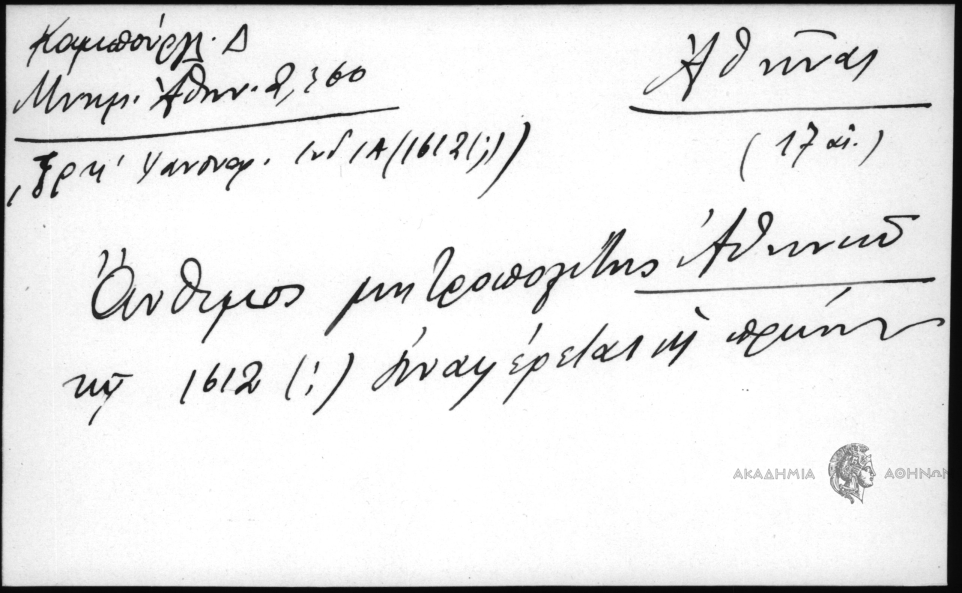 Καμπούρογλ. Δ
Μνημ. Ἀθην. 2, 360
Ἀθήνας
(17 αἰ.)
Ἰνδ ΙΑ (1612 (;))
Ἄνθιμος μητροπολίτης Ἀθηνῶν
τῷ 1612 (;) ἀναφέρεται
ΑΚΑΔΗΜΙΑ ΑΘΗΝΩΝ